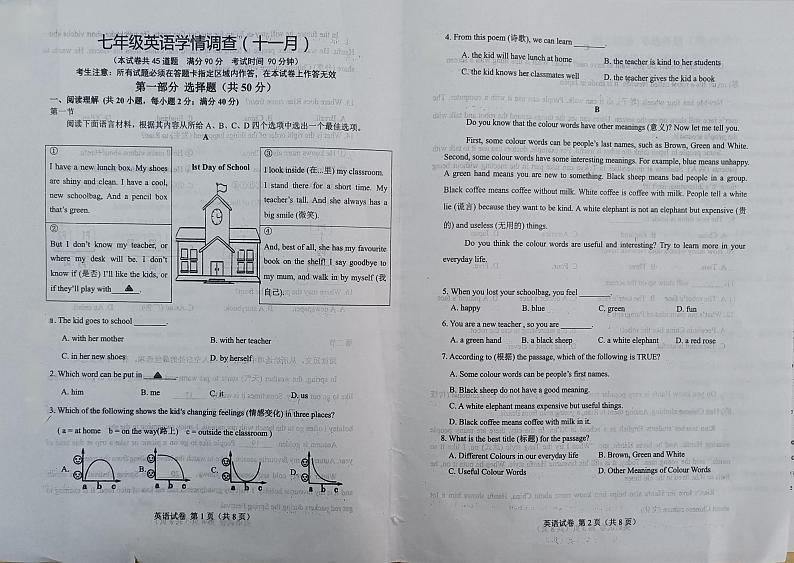 七年级英语学情调查（十一月）
（本试卷共 45 道题 满分 90 分 考试时间 90 分钟）
考生注意：所有试题必须在答题卡指定区域内作答，在本试卷上作答无效
第一部分 选择题（共 50 分）
一、阅读理解（共 20 小题，每小题 2 分；满分 40 分）
第一节
阅读下面语言材料，根据其内容从所给 A、B、C、D 四个选项中选出一个最佳选项。
A
①
I have a new lunch box. My shoes
are shiny and clean. I have a cool,
new schoolbag, And a pencil box
that's green.
②
But I don't know my teacher, or
where my desk will be. I don't
know if (是否) I'll like the kids, or
if they'll play with ▲ .
1st Day of School
③
I look inside (在...里) my classroom.
I stand there for a short time. My
teacher's tall. And she always has a
big smile (微笑).
④
And, best of all, she has my favourite
book on the shelf! I say goodbye to
my mum, and walk in by myself (我
自己).
1. The kid goes to school ______.
A. with her mother
B. with her teacher
C. in her new shoes
D. by herself
2. Which word can be put in ▲ .
A. him
B. me
C. it
D. us
3. Which of the following shows the kid's changing feelings (情感变化) in three places?
( a = at home b = on the way(路上) c = outside the classroom )
A.
a b c
B.
a b c
C.
a b c
D.
a b c
英语试卷 第 1 页（共 8 页）
4. From this poem (诗歌), we can learn ______
A. the kid will have lunch at home
B. the teacher is kind to her students
C. the kid knows her classmates well
D. the teacher gives the kid a book
B
Do you know that the colour words have other meanings (意义)? Now let me tell you.
First, some colour words can be people's last names, such as Brown, Green and White.
Second, some colour words have some interesting meanings. For example, blue means unhappy.
A green hand means you are new to something. Black sheep means bad people in a group.
Black coffee means coffee without milk. White coffee is coffee with milk. People tell a white
lie (谎言) because they want to be kind. A white elephant is not an elephant but expensive (贵
的) and useless (无用的) things.
Do you think the colour words are useful and interesting? Try to learn more in your
everyday life.
5. When you lost your schoolbag, you feel ______.
A. happy
B. blue
C. green
D. fun
6. You are a new teacher , so you are ______.
A. a green hand
B. a black sheep
C. a white elephant
D. a red rose
7. According to (根据) the passage, which of the following is TRUE?
A. Some colour words can be people's first names.
B. Black sheep do not have a good meaning.
C. A white elephant means expensive but useful things.
D. Black coffee means coffee with milk in it.
8. What is the best title (标题) for the passage?
A. Different Colours in our everyday life
B. Brown, Green and White
C. Useful Colour Words
D. Other Meanings of Colour Words
英语试卷 第 2 页（共 8 页）